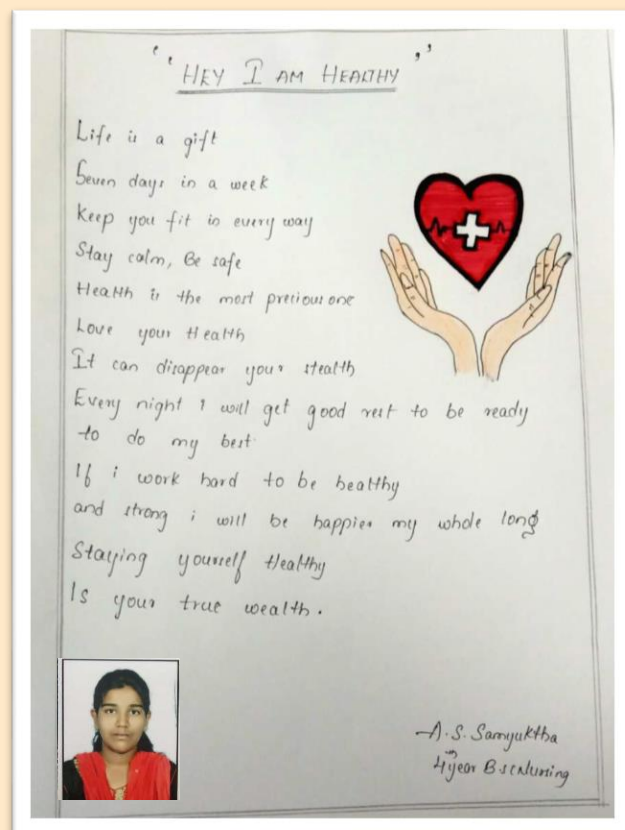 ‘‘HEY I AM HEALTHY’’
Life is a gift
Seven days in a week
Keep you fit in every way
Stay calm, Be safe
Health is the most precious one
Love your Health
It can disappear your stealth
Every night I will get good rest to be ready
to do my best.
If i work hard to be healthy
and strong i will be happier my whole long
Staying yourself Healthy
Is your true wealth.
A.S. Samyuktha
4th year B sc Nursing